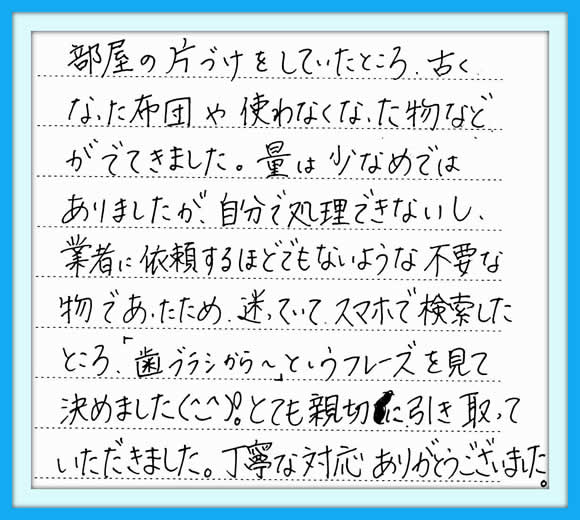 部屋の片づけをしていたところ、古く
なった布団や使わなくなった物など
がでてきました。量は少なめでは
ありましたが、自分で処理できないし、
業者に依頼するほどでもないような不要な
物であったため、迷っていて、スマホで検索した
ところ、「歯ブラシから〜」というフレーズを見て
決めました(^_^)。とても親切に引き取って
いただきました。丁寧な対応ありがとうございました。